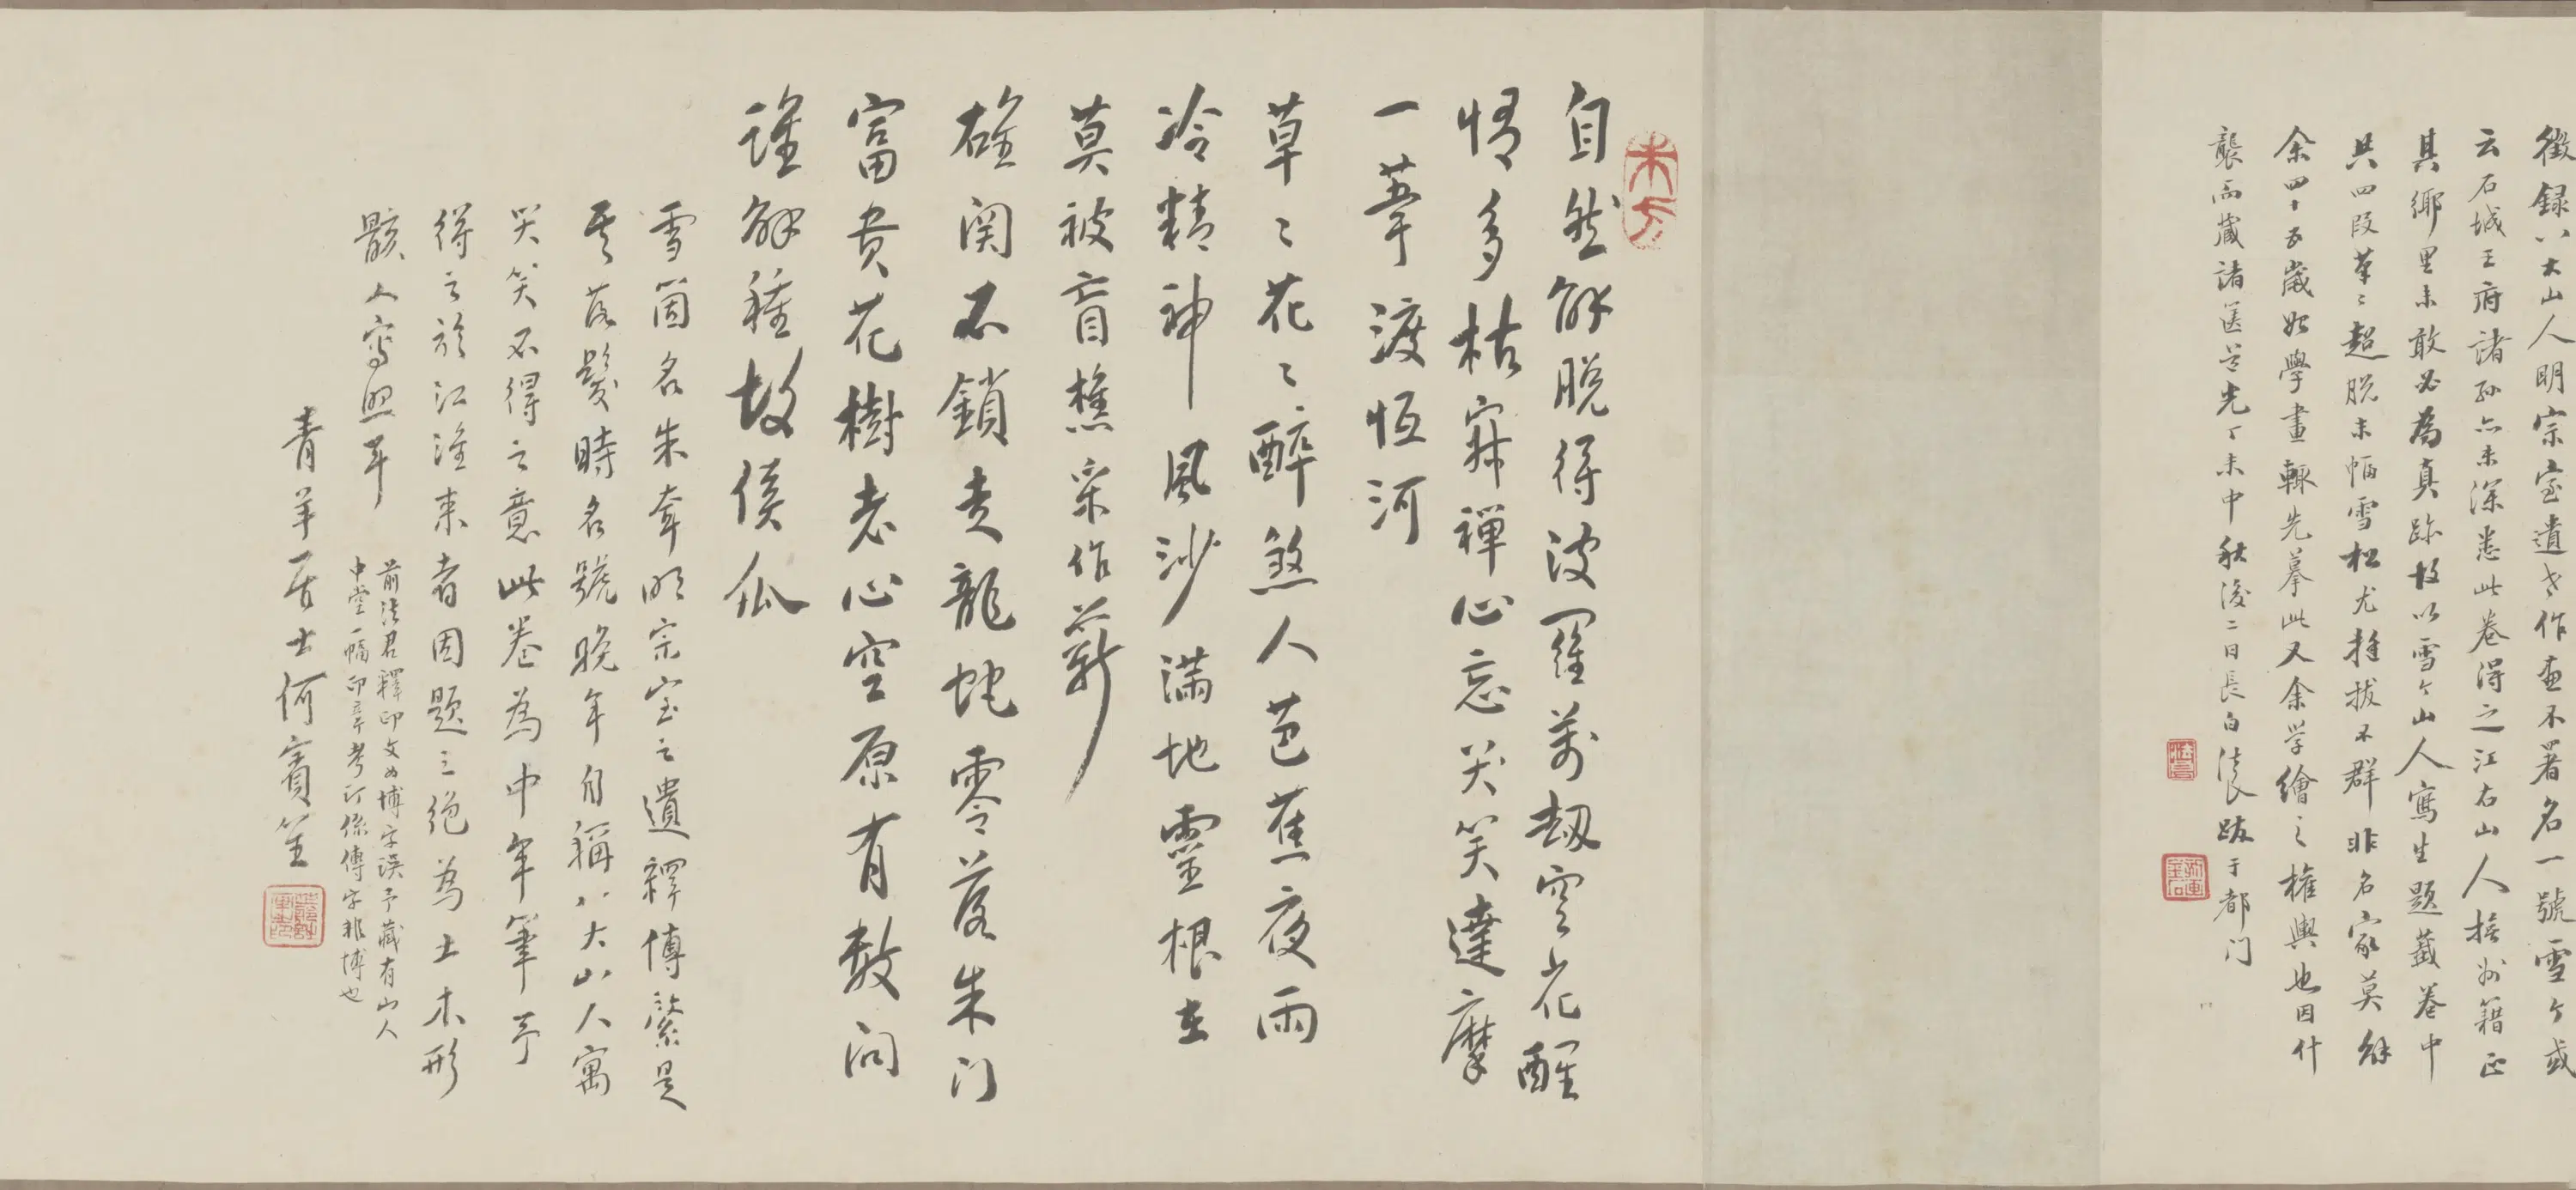 徵錄八大山人明宗室遺老作畫不署名一號雪个或
云石城王府諸孫亦未深悉此卷得之江右山人撫州籍正
其鄉里未敢必為真跡故以雪个山人寫生題籤卷中
共四段草〻超脫末幅雪松尤挺拔不群非名家莫辦
余四十五歲始學畫輒先摹此又余学繪之權輿也因什
襲而藏諸篋首先丁未中秋後二日長白法良跋于都门
自然解脫得波羅萬劫空花醒
情多枯寂禪心忘哭笑達摩
一葦渡恆河
草〻花〻醉煞人芭蕉夜雨
冷精神風沙滿地靈根在
莫被盲樵采作薪
碓関不鎖走龍蛇零落朱门
富贵花樹老心空原有數问
誰解種故侯瓜
雪箇名朱耷明宗室之遺釋傳綮是
其落髮時名號晚年自稱八大山人寓
哭笑不得之意此卷為中年筆予
得之於江淮来者因題三绝為土木形
骸人寫照耳
前法君釋印文為博字误予藏有山人
中堂一幅印章考订係傳字非博也
青羊居士何賓笙